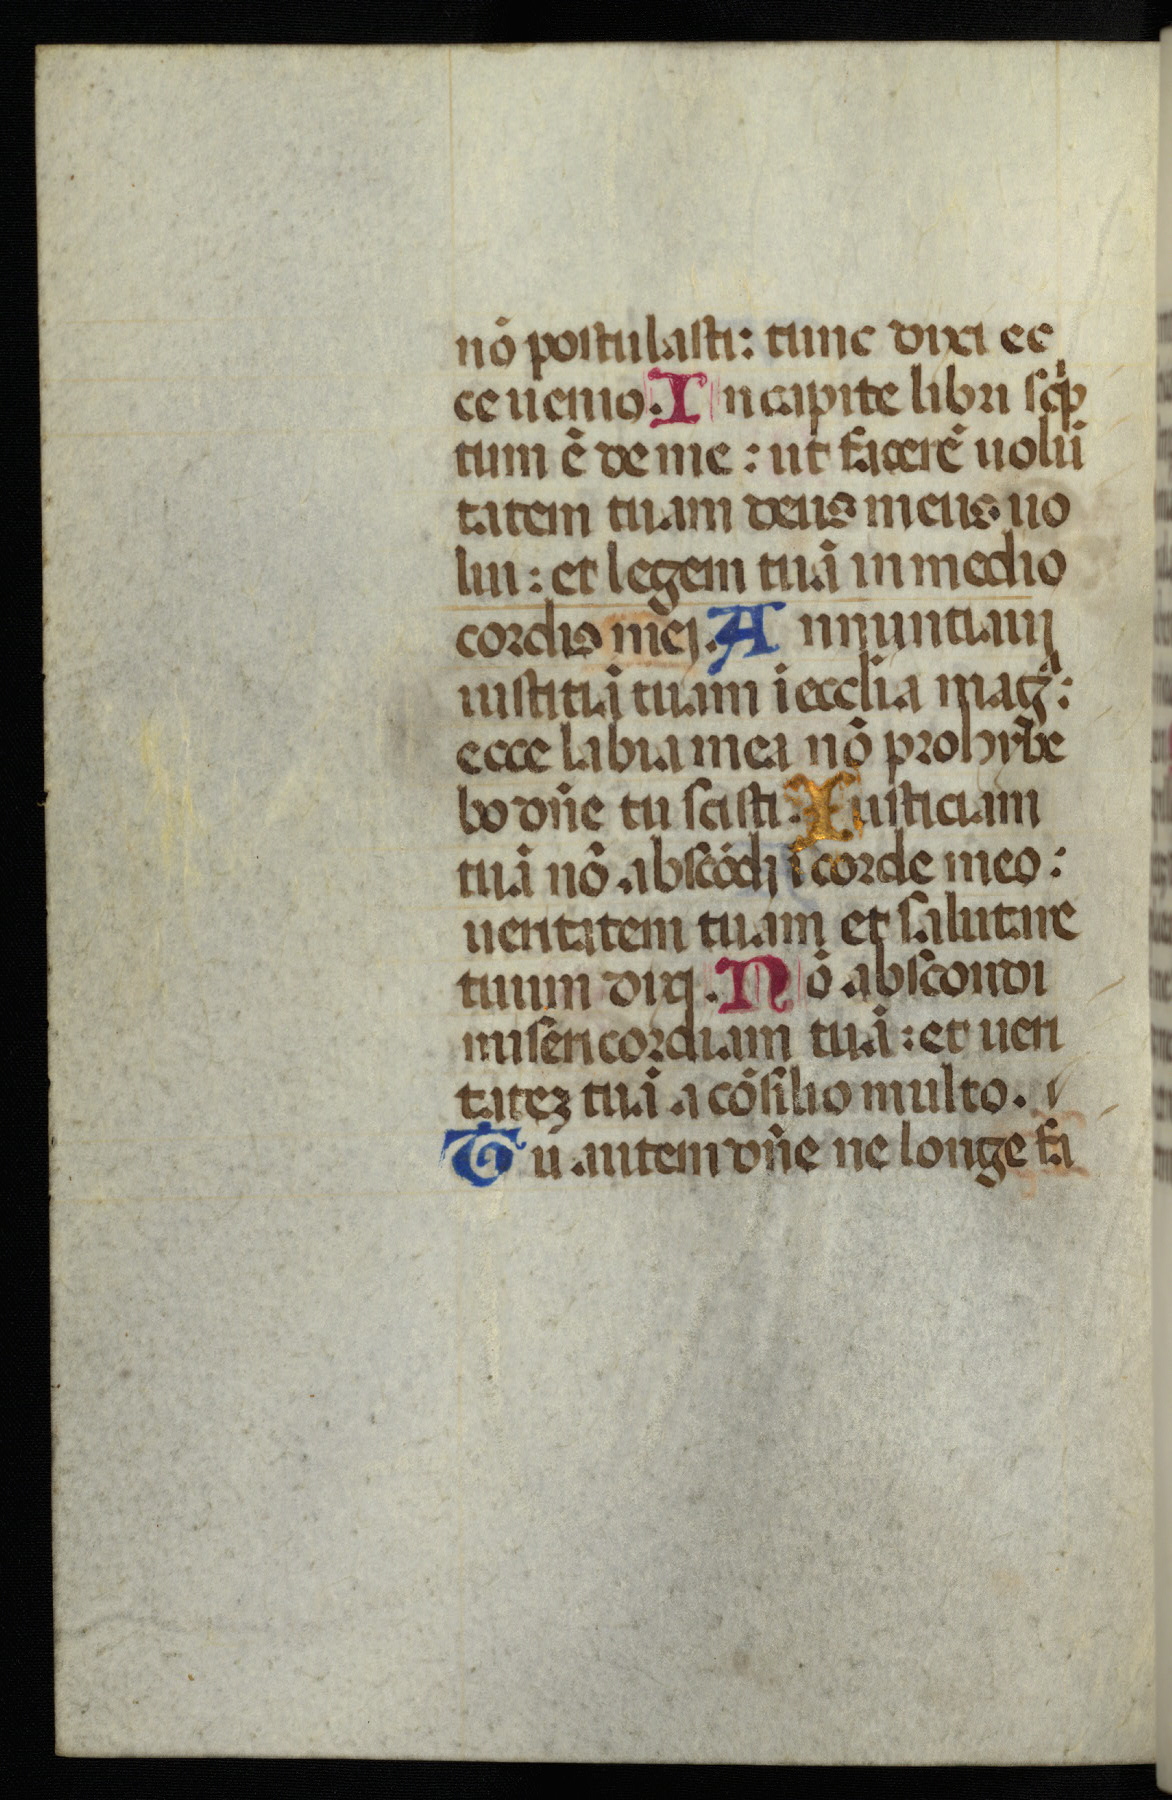 nō postulasti: tunc dixi ec
ce uenio. In capite libri scͥp
tum ē de me: ut facerē uolū
tatem tuam deus meus uo
lui: et legem tuā in medio
cordis mei. Annuntiauj
iustitiā tuam ī ecclīa magͣ:
ecce labia mea nō prohybe
bo dn̄e tu scisti. Iusticiam
tuā nō abscōdj ī corde meo:
ueritatem tuam et salutare
tuum dixj. Nō abscondi
misericordiam tuā: et ueri
tateꝫ tuā a cōsilio multo.
Tu autem dn̄e ne longe fa